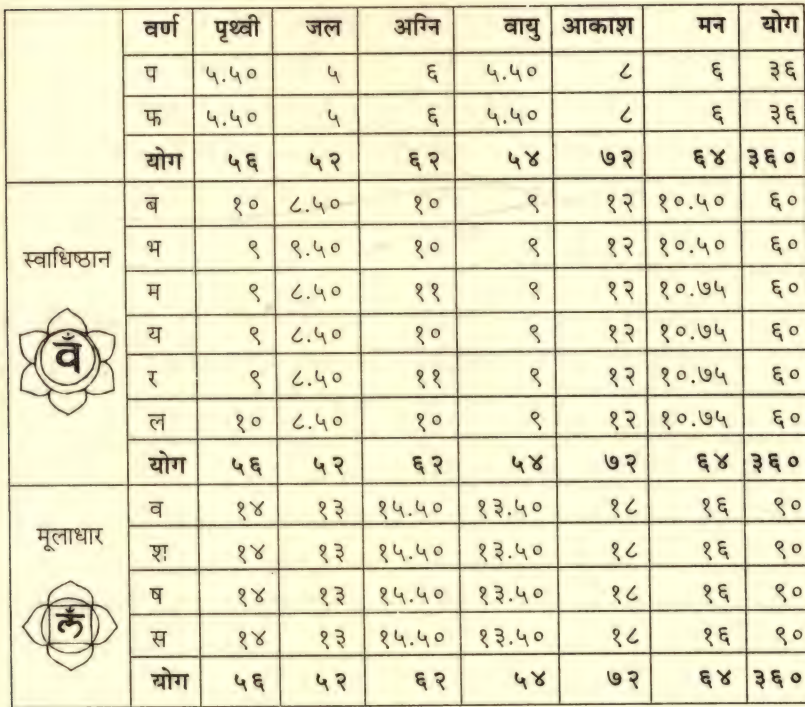 वर्ण पृथ्वी जल अग्नि वायु आकाश मन योग
प ५.५० ५ ६ ५.५० ८ ६ ३६
फ ५.५० ५ ६ ५.५० ८ ६ ३६
योग ५६ ५२ ६२ ५४ ७२ ६४ ३६०
स्वाधिष्ठान
वँ
ब १० ८.५० १० ९ १२ १०.५० ६०
भ ९ ९.५० १० ९ १२ १०.५० ६०
म ९ ८.५० ११ ९ १२ १०.७५ ६०
य ९ ८.५० १० ९ १२ १०.७५ ६०
र ९ ८.५० ११ ९ १२ १०.७५ ६०
ल १० ८.५० १० ९ १२ १०.७५ ६०
योग ५६ ५२ ६२ ५४ ७२ ६४ ३६०
मूलाधार
लँ
व १४ १३ १५.५० १३.५० १८ १६ ९०
श १४ १३ १५.५० १३.५० १८ १६ ९०
ष १४ १३ १५.५० १३.५० १८ १६ ९०
स १४ १३ १५.५० १३.५० १८ १६ ९०
योग ५६ ५२ ६२ ५४ ७२ ६४ ३६०